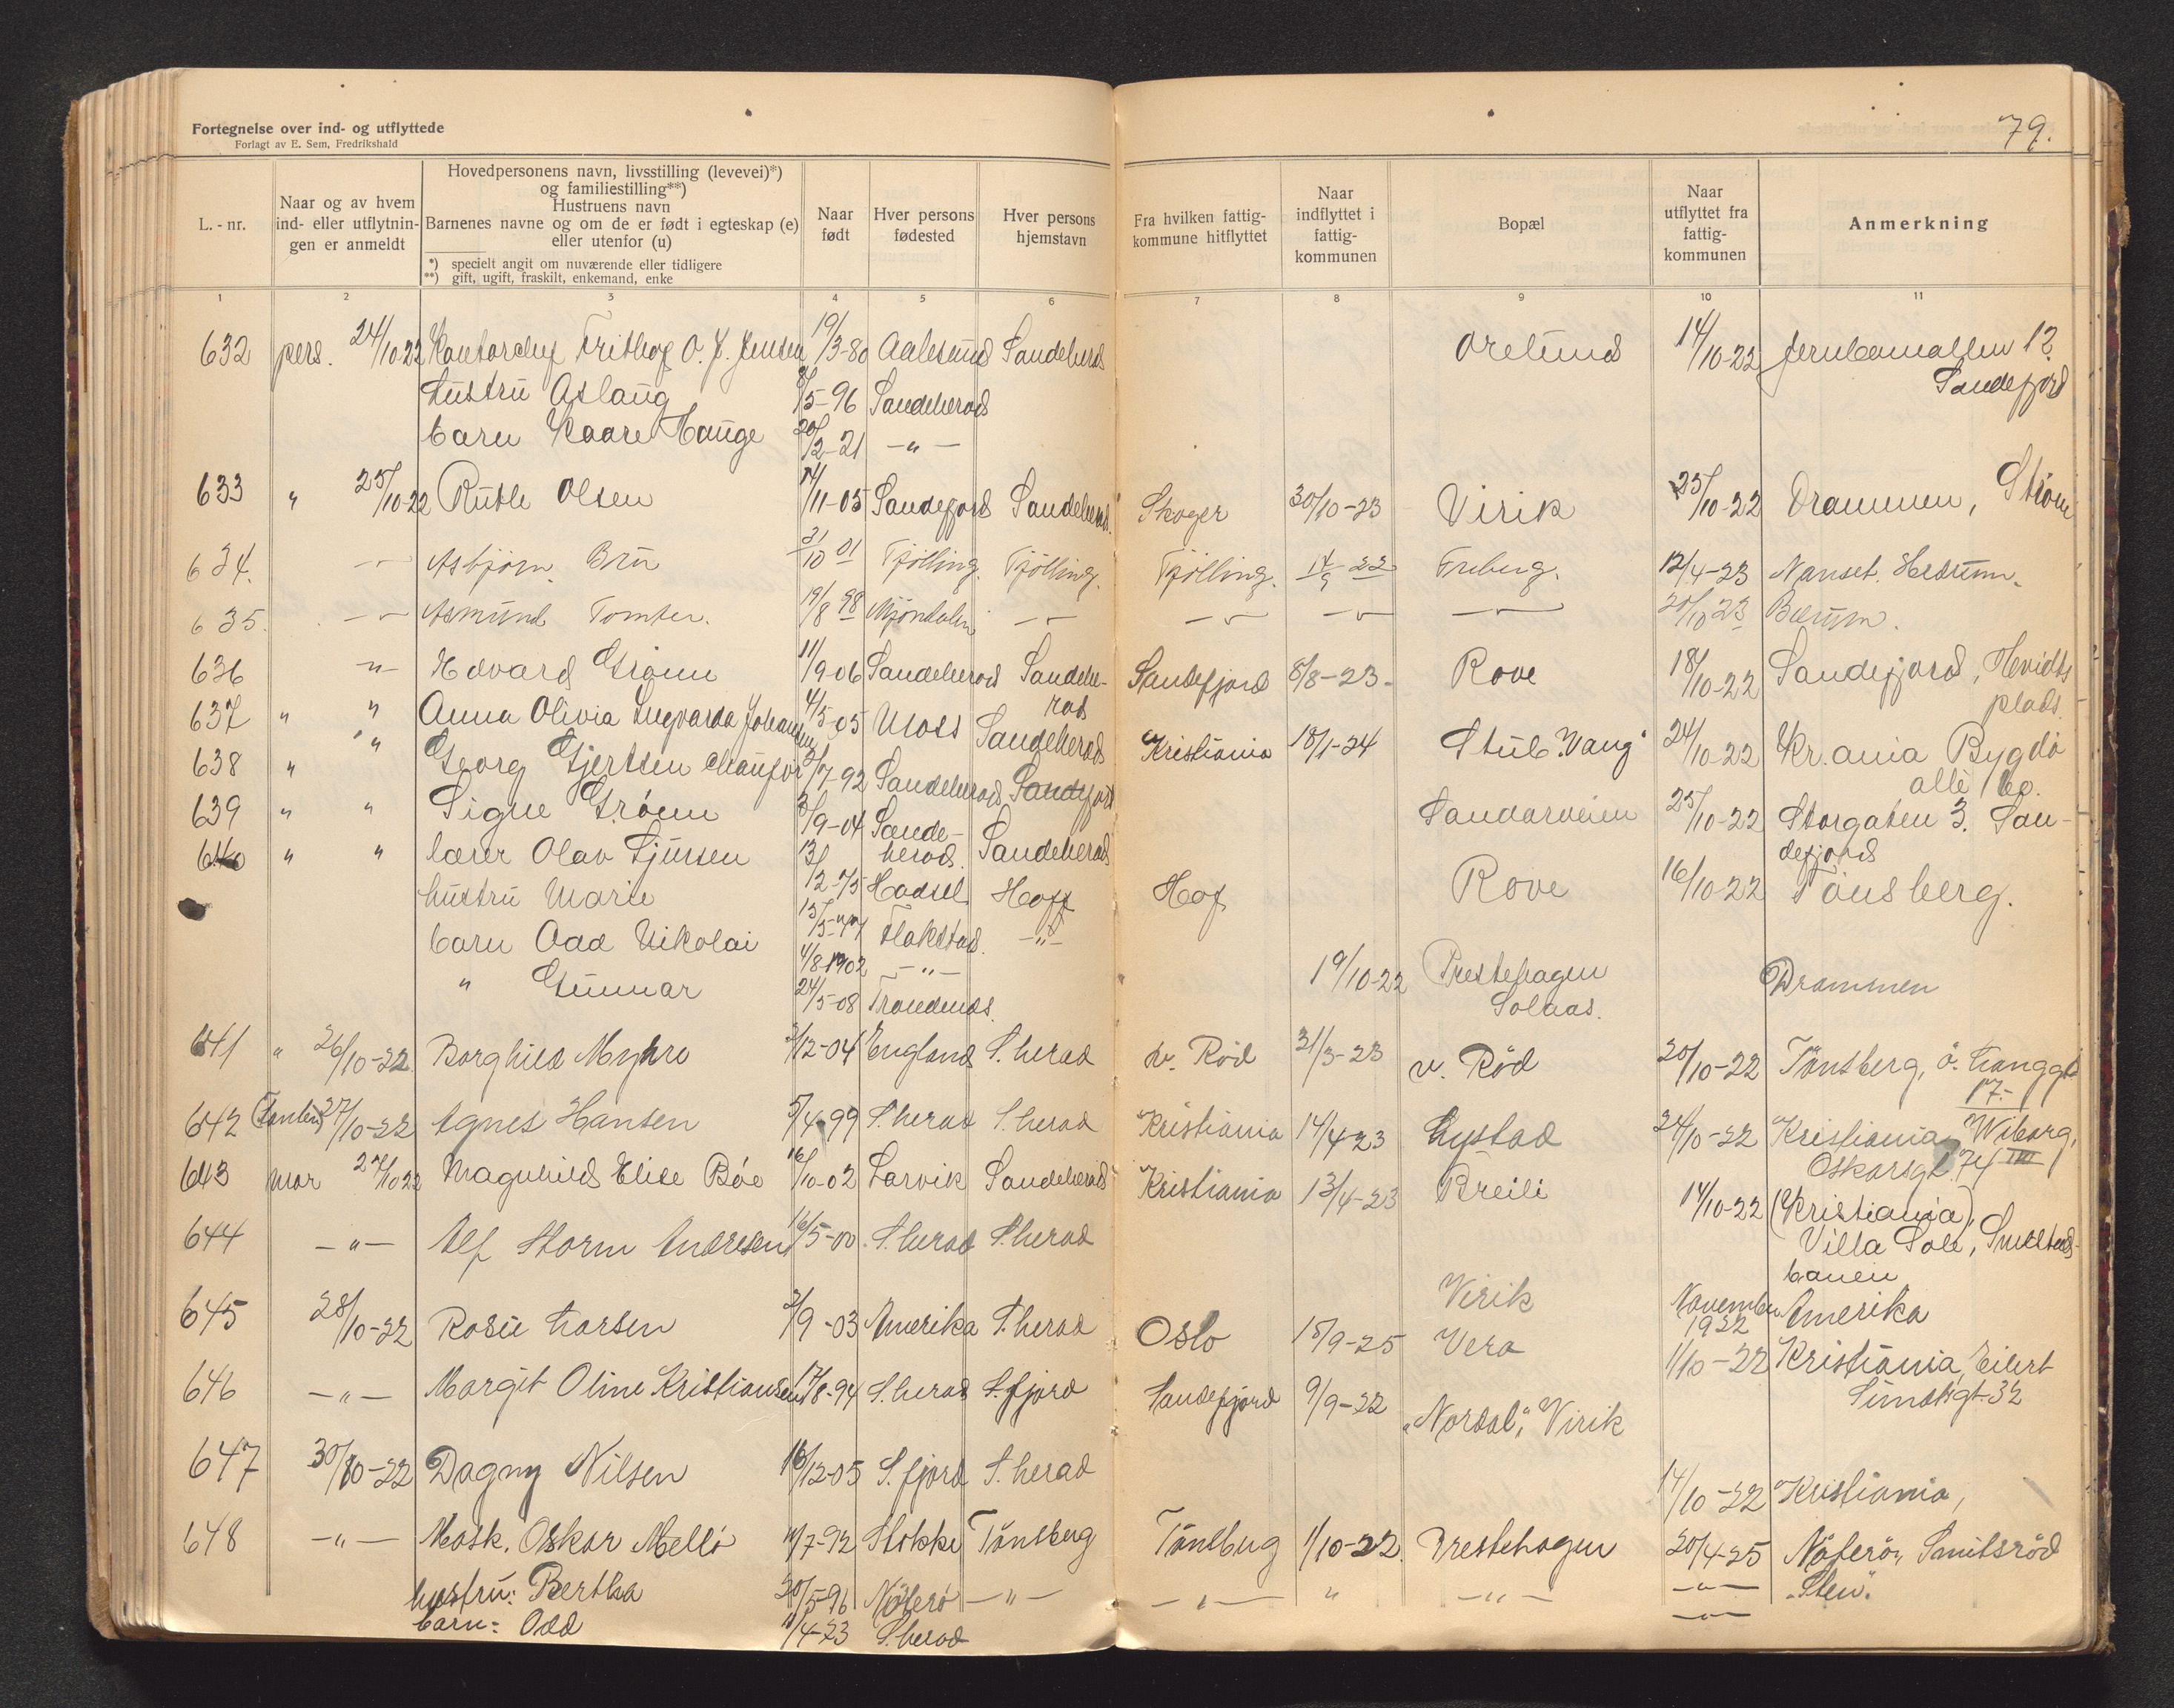 79.
Fortegnelse over ind- og utflyttede
Forlagt av E. Sem, Fredrikshald
L.-nr.
Naar og av hvem ind- eller utflytnin- gen er anmeldt
Hovedpersonens navn, livsstilling (levevei)*) og familiestilling**)
Hustruens navn
Barnenes navne og om de er født i egteskap (e) eller utenfor (u)
*) specielt angit om nuværende eller tidligere
**) gift, ugift, fraskilt, enkemand, enke
Naar født
Hver persons fødested
Hver persons hjemstavn
Fra hvilken fattig- kommune hitflyttet
Naar indflyttet i fattig- kommunen
Bopæl
Naar utflyttet fra fattig- kommunen
Anmerkning
1 2 3 4 5 6 7 8 9 10 11
632 pers. 24/10-22 Kontorchef Frithof O. J. Jensen 19/3-80 Aalesund Sandeherad Orelund 14/10-22 Jernbanealleen 12
Sandefjord
hustru Aslaug /5-96 Sandeherad
barn Kaare Hauge 20/2-21 -"-
633 " 25/10-22 Ruth Olsen 14/11-05 Sandefjord Sandeherad Skoger 30/10-23 Virik 25/10-22 Drammen, Strøm
634. Asbjørn Brun 31/10 01 Tjølling. Tjølling. Tjølling. 14/9 22 Freberg. 12/4-23 Nanset. Hedrum.
635. Asmund Tomter. 19/8 98 Mjøndalen 20/10 23 Bærum.
636 -"- Edvard Grønn 11/9-06 Sandeherad Sandehe-
rad Sandefjord 8/8-23- Rove 18/10-22 Sandefjord, Hvidts
plads.
637 " " Anna Olivia Ingvarda Johansen 4/5-05 Moss Sandeherad Kristiania 18/1-24 Stub. "Vang" 24/10-22 Kr.ania Bygdø
alle 60.
638 " " Georg Gjertsen chaufør /7-92 Sandeherad Sandefjord Sandarveien 25/10-22 Storgaten 3. San-
defjord
639 " " Signe Grønn /9-04 Sande-
herad. Sandeherad Rove 16/10-22 Tønsberg.
640 " " lærer Olav Sjursen 13/2-75 Hadsel Hoff Hof 19/10-22 Prestehagen
Solaas. Drammen
hustru Marie 13/5- Flakstad. -"-
barn Odd Nikolai 4/8-1902 -"-
" Gunnar 24/5-08 Trondenes.
641 " 26/10-22 Borghild Myhre 2/12-04 England S. herad v. Rød 31/3-23 v. Rød 20/10-22 Tønsberg, ø. Langgt
17.-
642 27/10-22 Agnes Hansen 5/4-99 S. herad S. herad Kristiania 14/4-23 Lystad 24/10-22 Kristiania, Wiborg,
Oskarsgt. 74 III
643 mor 27/10 22 Magnhild Elise Bøe 16/10-02 Larvik Sandeherad Kristiania 13/4-23 Breili 14/10-22 (Kristiania),
Villa Sole, Smestad-
banen
644 -"- Alf Storm Andresen 16/5-00 S. herad S. herad Virik November
1922 Amerika
645 28/10-22 Rosie Larsen 2/9-03 Amerika S. herad Oslo 15/9-25 Vera 1/10-22 Kristiania, Eilert
Sundtsgt. 32
646 -"- Margit Oline Kristiansen 17/8-94 S. herad S. fjord Sandefjord 9/9-22 "Nordal", Virik
647 30/10-22 Dagny Nilsen 16/12-05 S. fjord S. herad 14/10-22 Kristiania,
648 -"- Mask. Oskar Mellø /7-92 Stokke Tønsberg Tønsberg 1/10-22. Prestehagen 20/4-25 Nøterø, Smitsrød
hustru: Bertha 30/5-96 Nøterø -"- -"- " -"- -"- "Sten".
barn: Odd 11/4-23 S. herad -"-